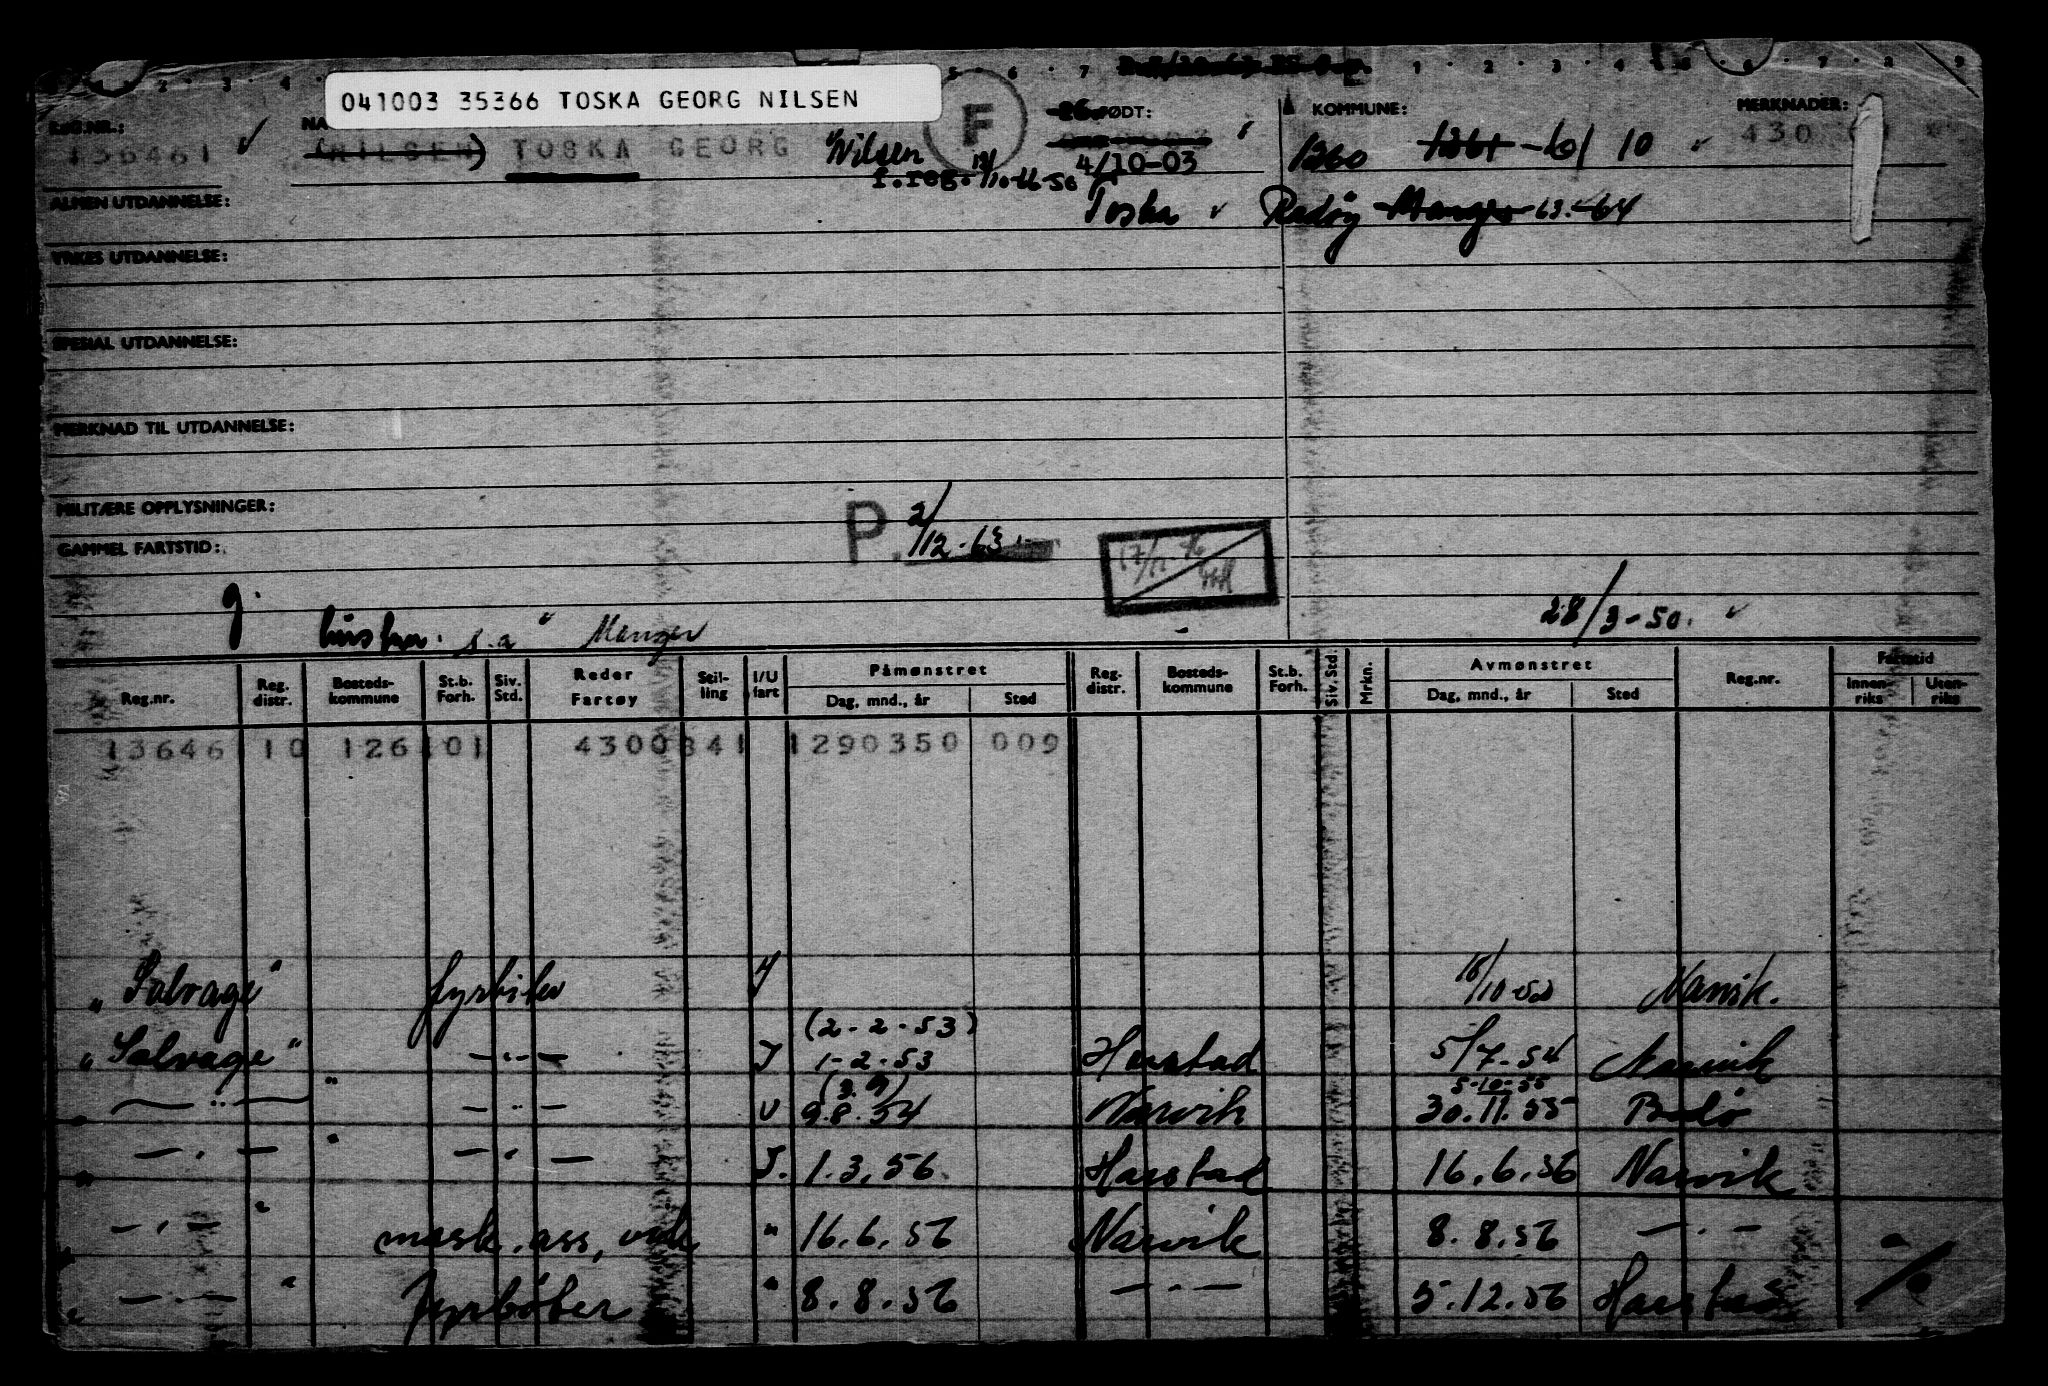 041003 35366 TOSKA GEORG NILSEN
REG.NR.:
FØDT:
KOMMUNE:
MERKNADER:
136461
(NILSEN) TOSKA GEORG Nilsen
F
4/10-03
1260 1261 - 61 10
430
f.reg.
Toska
Radøy Manger 63.-64
ALMEN UTDANNELSE:
YRKES UTDANNELSE:
SPESIAL UTDANNELSE:
MERKNAD TIL UTDANNELSE:
MILITÆRE OPPLYSNINGER:
GAMMEL FARTSTID:
P. 2/12-63
17/11 76
g. hustru: s.a. Manger
28/3-50.
Reg.nr. Reg. distr. Bosteds-kommune St.b. Forh. Siv. Std. Reder Fartøy Stil-ling I/U fart Påmønstret Dag, mnd., år Sted Reg. distr. Bosteds-kommune St.b. Forh. Siv. Std. Mrkn. Avmønstret Dag, mnd., år Sted Reg.nr. Fartstid Innen-riks Uten-riks
13646 10 126 101 4300 341 1290350 009
"Salvage" fyrbøter 18/10-50 Narvik.
(2-2-53)
"Salvage" -"- I 1-2-53 Harstad 5/7-54 Narvik
(3.9) 5-10-55
" -"- " -"- U 9.8.54 Narvik 30.11.55 Bodø
" -"- " -"- I. 1.3.56 Harstad 16.6.56 Narvik
" -"- " mask.ass. vik " 16.6.56 Narvik 8.8.56 -"-
" -"- " Fyrbøter " 8.8.56 -"- 5.12.56 Harstad